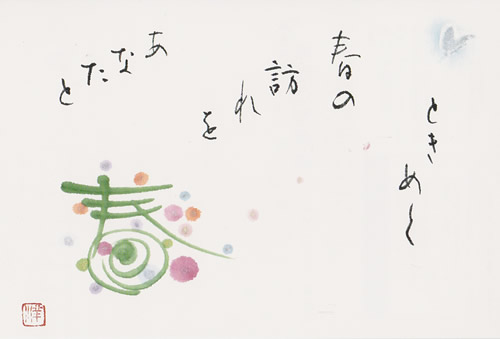 ときめく
春の
訪れを
あなたと
春